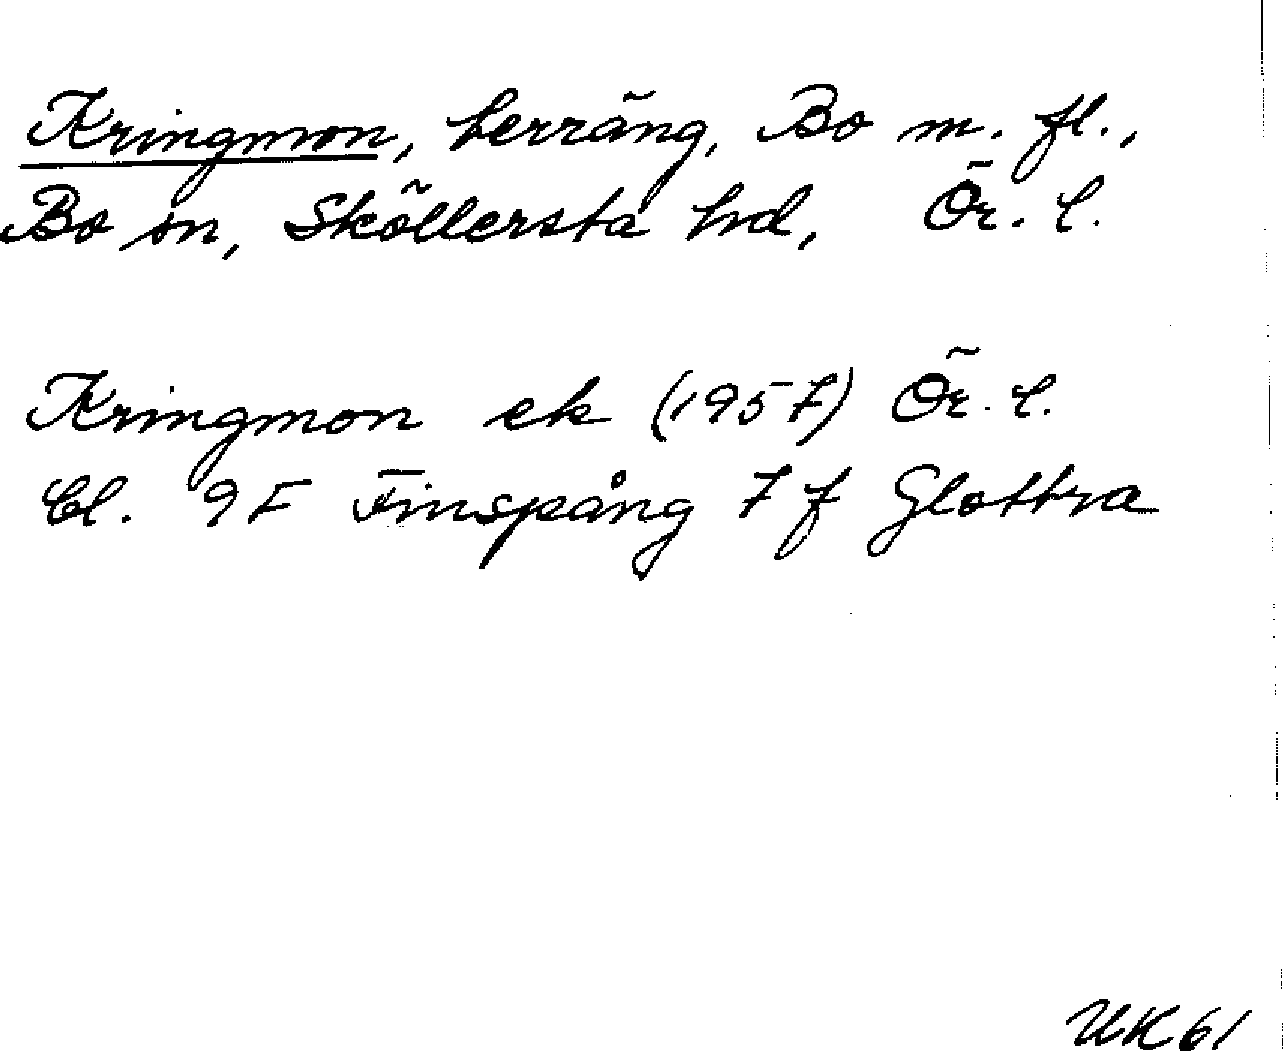 Kringmon, terräng, Bo m. fl.,
Bo sn, Sköllersta hd, Ör. l.
Kringmon ek (1957) Ör. l.
Bl. 9F Finspång 7 f Glottra
UK 61